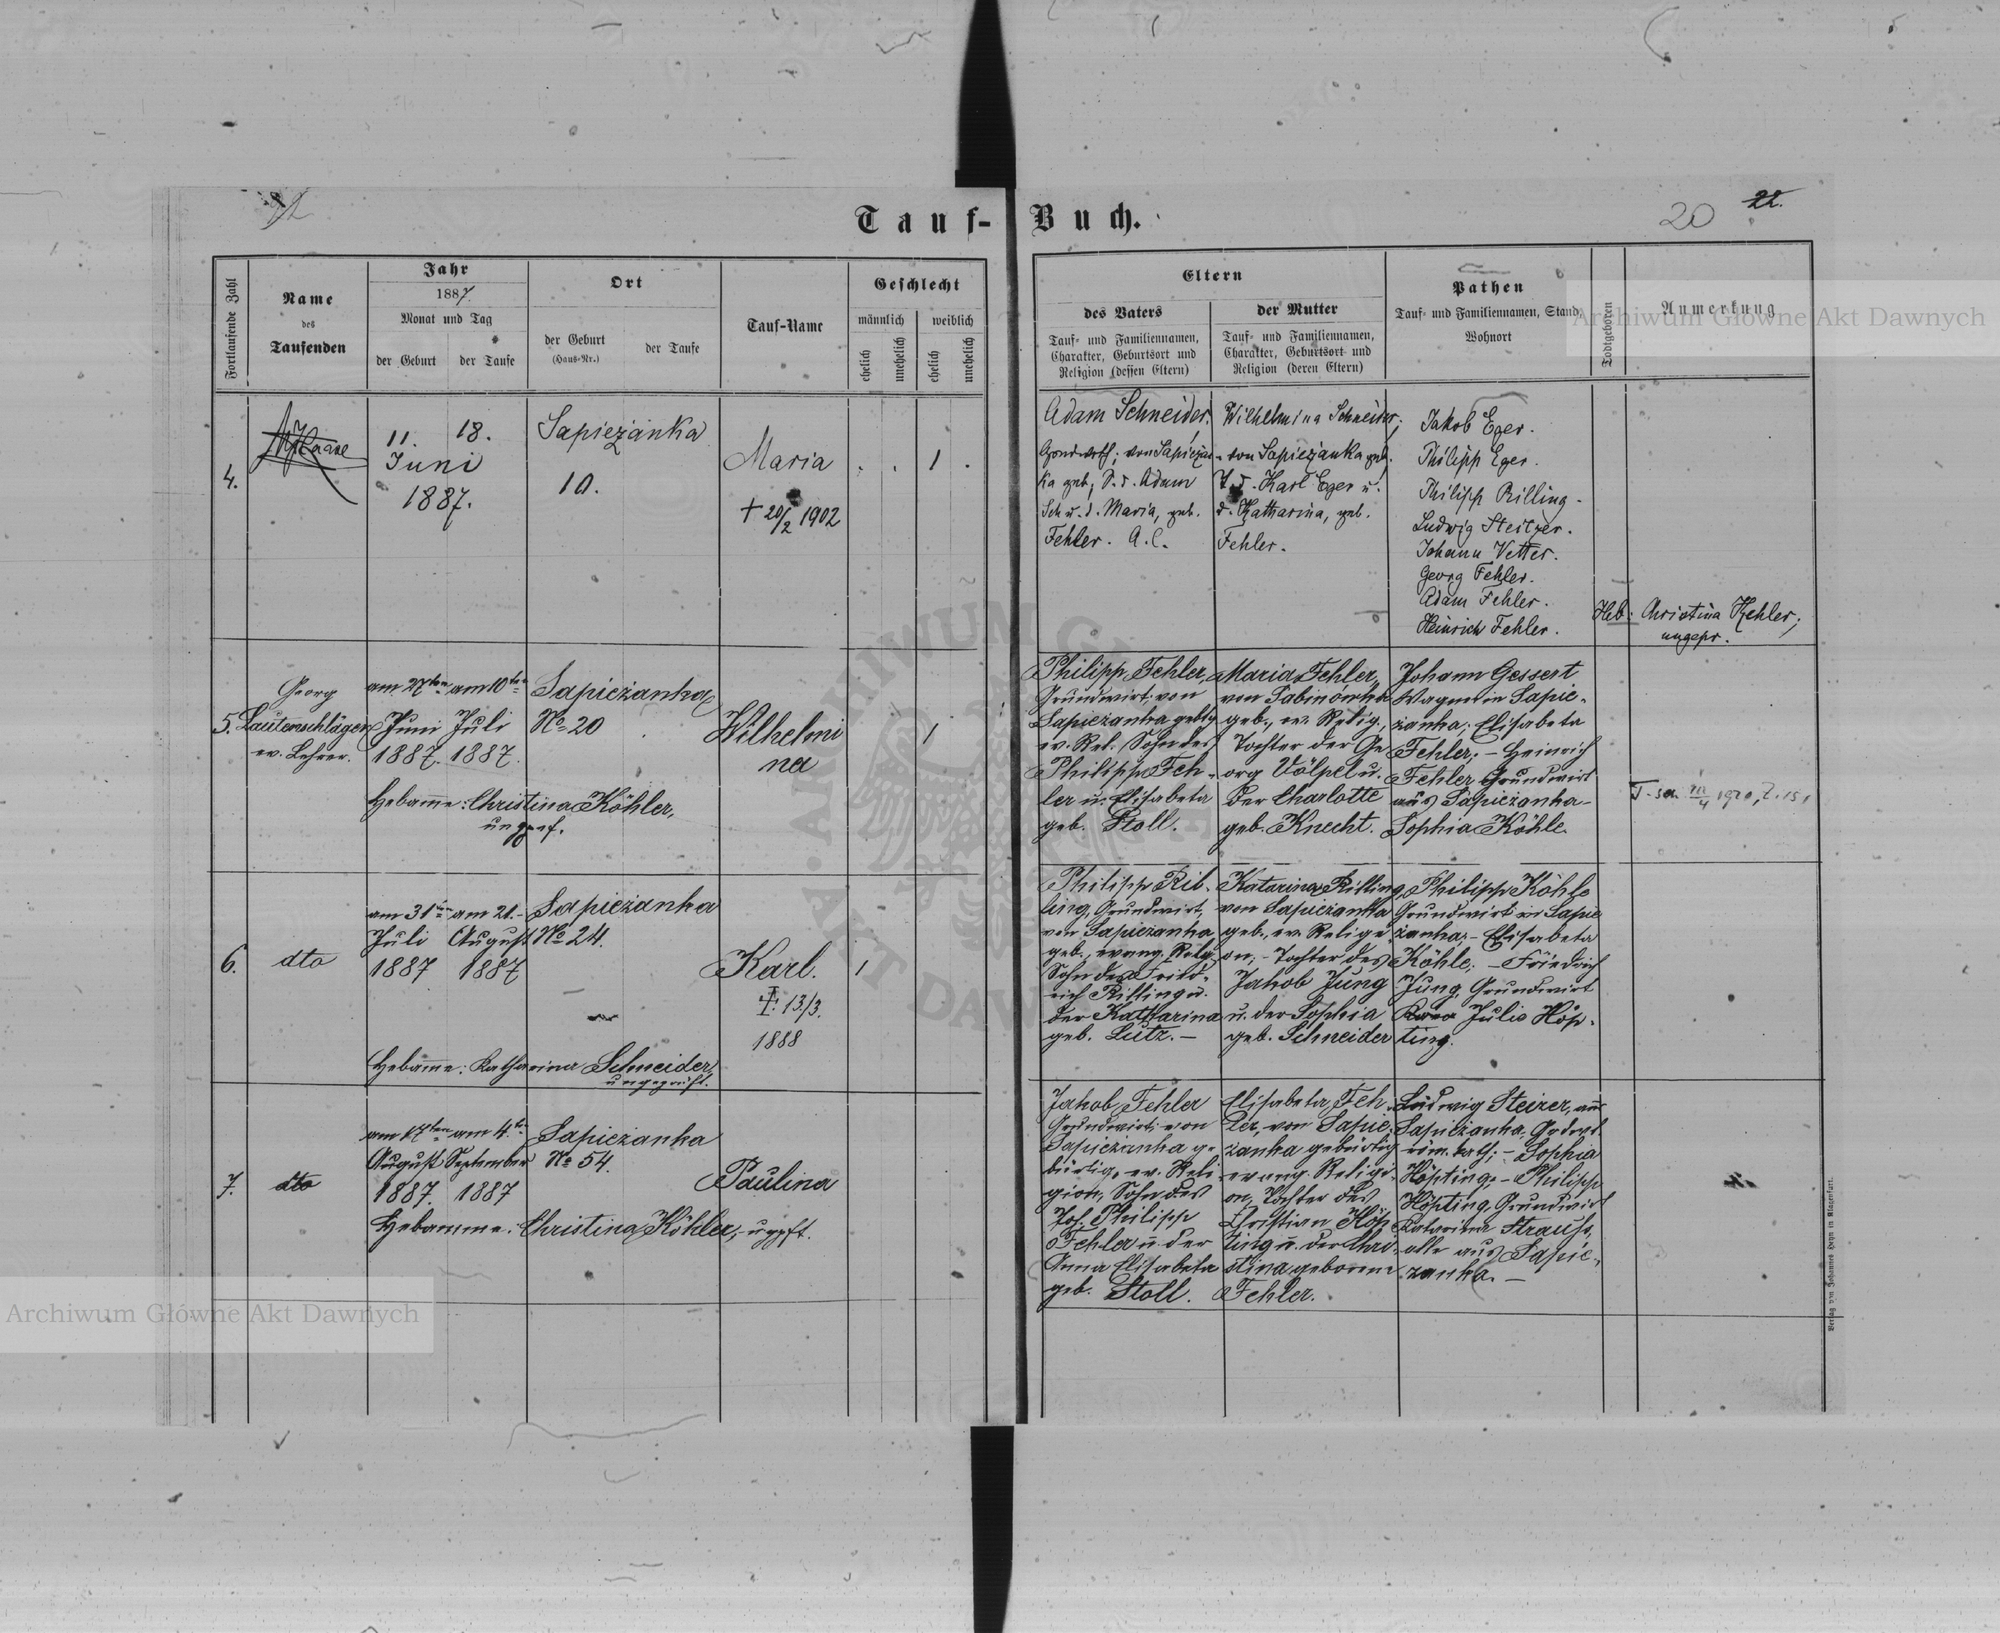 Tauf-Buch.
20 22.
Fortlaufende Zahl
Name
des
Taufenden
Jahr
1887
Monat und Tag
der Geburt
der Taufe
Ort
der Geburt
(Haus-Nr.)
der Taufe
Tauf-Name
Geschlecht
männlich
weiblich
ehelich
unehelich
ehelich
unehelich
Eltern
des Vaters
Tauf- und Familiennamen,
Charakter, Geburtsort und
Religion (dessen Eltern)
der Mutter
Tauf- und Familiennamen,
Charakter, Geburtsort und
Religion (deren Eltern)
Pathen
Tauf- und Familiennamen, Stand,
Wohnort
Todtgeboren
Anmerkung
4.
11. 18.
Juni
1887.
Sapiezanka
10.
Maria
† 20/2 1902
1
Adam Schneider,
Grundwirth; von Sapiezan-
ka geb., S. d. Adam
Sch u. d. Maria, geb.
Fehler. A. C.
Wilhelmina Schneider,
von Sapiezanka geb.
T. d. Karl Eger u.
d. Katharina, geb.
Fehler.
Jakob Eger.
Philipp Eger.
Philipp Rilling.
Ludwig Steizer.
Johann Vetter.
Georg Fehler.
Adam Fehler.
Heinrich Fehler.
Heb: Christina Kehler,
ungepr.
5.
Georg
Lautenschläger
ev. Lehrer.
am 27ten am 10ten
Juni Juli
1887. 1887.
Sapiezanka
No 20
Hebamme: Christina Köhler,
ungepf.
Wilhelmi
na
1
Philipp Fehler,
Grundwirt, von
Sapiezanka gebtg
ev. Rel. Sohn des
Philipp Feh-
ler u. Elisabeta
geb. Stoll.
Maria Fehler,
von Sabinowka
geb., ev. Relig.,
Tochter der Ge
org Völpel u.
der Charlotte
geb. Knecht.
Johann Gessert
Wagner in Sapie-
zanka; Elisabeta
Fehler; - Heinrich
Fehler Grundwirt
aus Sapiezanka-
Sophia Köhle.
6.
dto
am 31ten am 21.
Juli August
1887 1887
Sapiezanka
No 24.
Karl.
†: 13/3.
1888
1
Hebamme: Katharina Schneider,
ungeprüft.
Philipp Ril-
ling, Grundwirt,
von Sapiezanka
geb., evang. Relig
Sohn des Fried-
rich Rilling u.
der Katharina
geb. Lutz. -
Katarina Rilling
von Sapiezanka
geb., ev. Religi
on; - Tochter des
Jakob Jung
u. der Sophia
geb. Schneider
Philipp Köhle
Grundwirt in Sapie
zanka; - Elisabeta
Köhle; - Friedrich
Jung Grundwirt
Julie Höp-
ting.
7.
dto
am 17ten am 4.ten
August September
1887. 1887
Sapiezanka
No 54.
Paulina
Hebamme: Christina Köhler, ungpft.
Jakob Fehler
Grundwirt von
Sapiezanka ge
bürtig, ev. Reli
gion, Sohn des
Joh. Philipp
Fehler u. der
Anna Elisabeta
geb. Stoll.
Elisabeta Feh
ler, von Sapie-
zanka gebürtig
evang. Religi-
on, Tochter des
Christian Höp
ting u. der Chri-
stina geboren
Fehler.
Ludwig Steizer, aus
Sapiezanka,
röm. kath; - Sophia
Höpting. - Philipp
Höpting, Grundwirt
Katarina Strauss,
alle aus Sapie-
zanka. -
Verlag von Johannes Heyn in Klagenfurt.
Archiwum Główne Akt Dawnych
Archiwum Główne Akt Dawnych